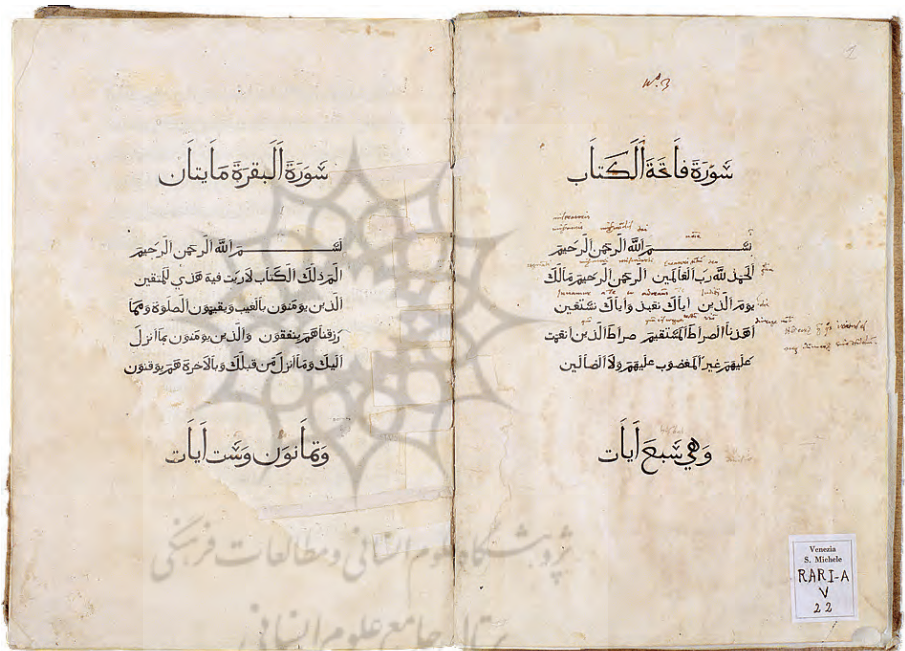 Nº 3
سورة فاتحة الكتاب
بسم الله الرحمن الرحيم
الحمد لله رب العالمين الرحمن الرحيم مالك
يوم الدين اياك نعبد واياك نستعين
اهدنا الصراط المستقيم صراط الذين انعمت
عليهم غير المغضوب عليهم ولا الضالين
وهي سبع ايات
Venezia
S. Michele
RARI-A
V
22
سورة البقرة مايتان
بسم الله الرحمن الرحيم
الم ذلك الكتاب لا ريب فيه هدي للمتقين
الذين يومنون بالغيب ويقيمون الصلوة ومما
رزقناهم ينفقون والذين يومنون بما انزل
اليك وما انزل من قبلك وبالاخرة هم يوقنون
وثمانون وست ايات
پژوهشگاه علوم انسانی و مطالعات فرهنگی
پرتال جامع علوم انسانی